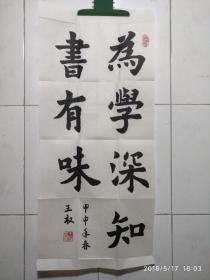 為學深知
書有味
甲申年春
王权
2018/5/17 18:03